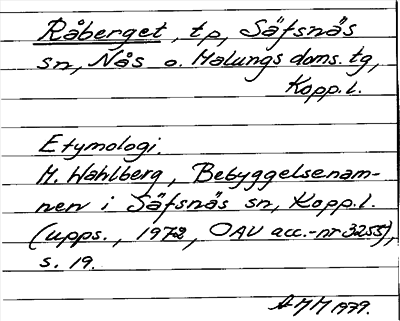 Råberget, tp, Säfsnäs
sn, Nås o. Malungs doms. tg,
Kopp.l.
Etymologi.
M. Wahlberg, Bebyggelsenam-
nen i Säfsnäs sn, Kopp.l.
(Upps., 1972, OAU acc.-nr 3255),
s. 19.
AMM 1979.